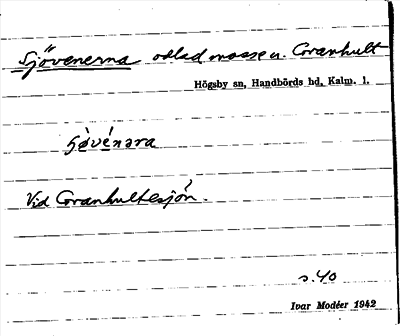 Sjövenerna odlad mosse u. Granhult
Högsby sn, Handbörds hd, Kalm. l.
Vid Granhultesjön.
s. 40
Ivar Modéer 1942